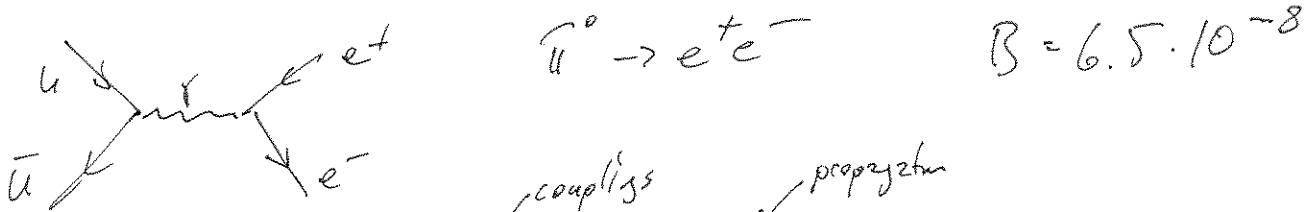 u γ e⁺ π° → e⁺e⁻ B = 6.5 · 10⁻⁸
ū e⁻ couplings propagator